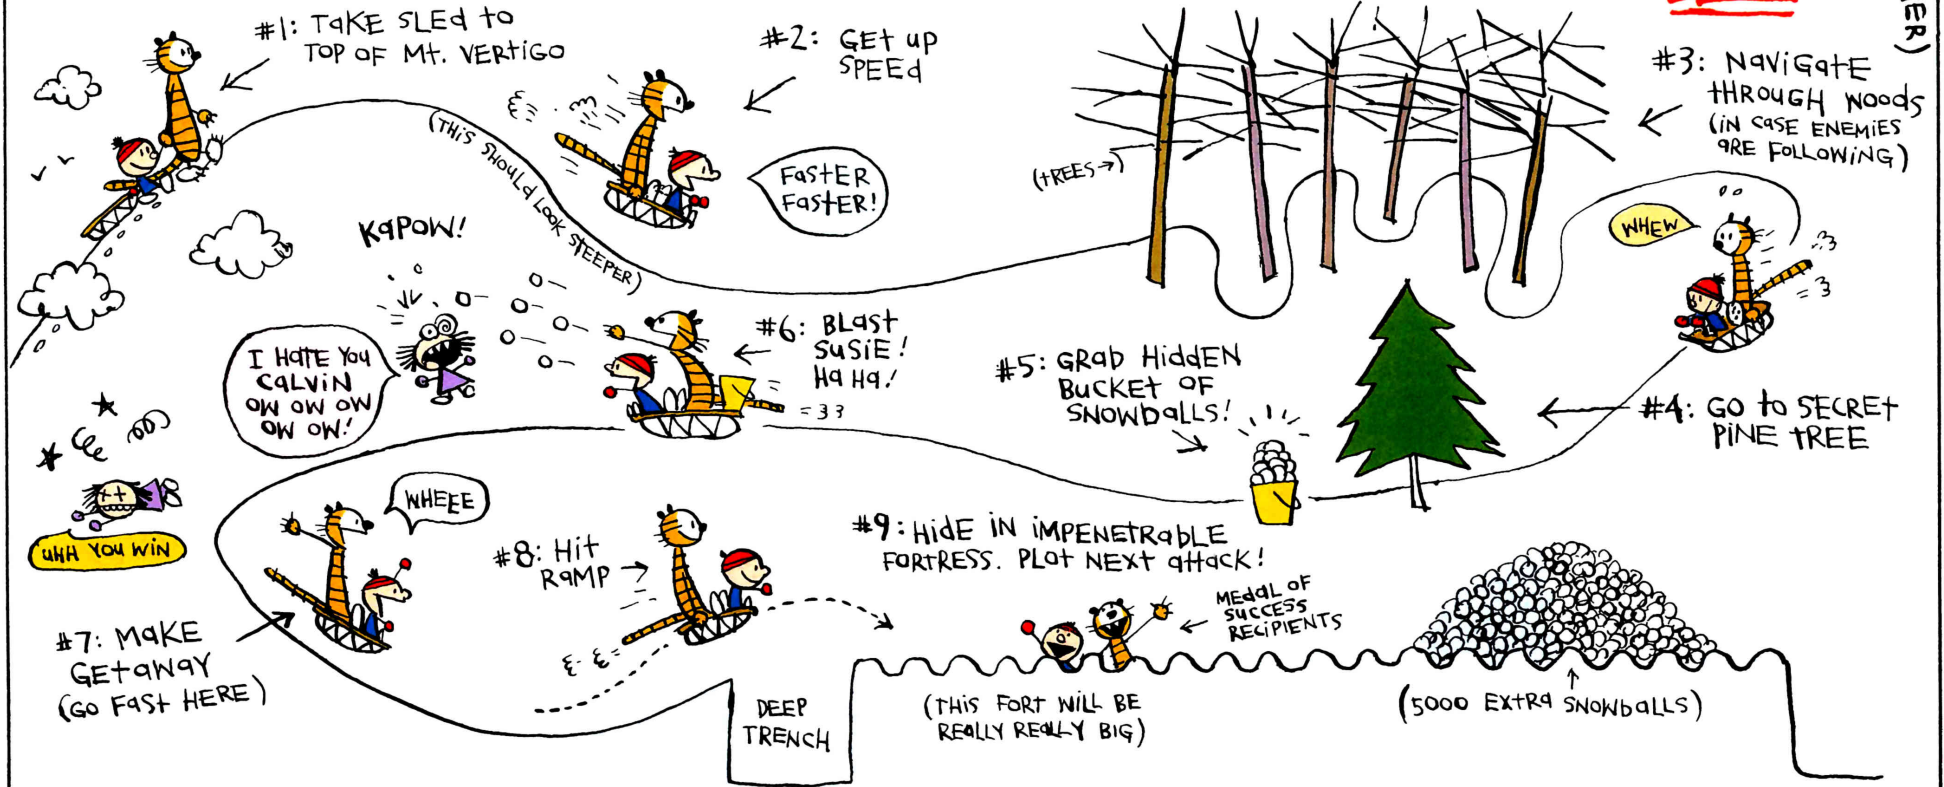 #1: TAKE SLED TO
TOP OF Mt. VERTIGO
#2: GET UP
SPEED
(THIS SHOULD LOOK STEEPER)
FASTER
FASTER!
(TREES→)
#3: NAVIGATE
THROUGH WOODS
(IN CASE ENEMIES
ARE FOLLOWING)
ER)
WHEW
#4: GO TO SECRET
PINE TREE
#5: GRAB HIDDEN
BUCKET OF
SNOWBALLS!
#6: BLAST
SUSIE!
HA HA!
KAPOW!
I HATE YOU
CALVIN
OW OW OW
OW OW!
UHH YOU WIN
#7: MAKE
GETAWAY
(GO FAST HERE)
WHEEE
#8: HIT
RAMP
DEEP
TRENCH
#9: HIDE IN IMPENETRABLE
FORTRESS. PLOT NEXT ATTACK!
MEDAL OF
SUCCESS
RECIPIENTS
(THIS FORT WILL BE
REALLY REALLY BIG)
(5000 EXTRA SNOWBALLS)